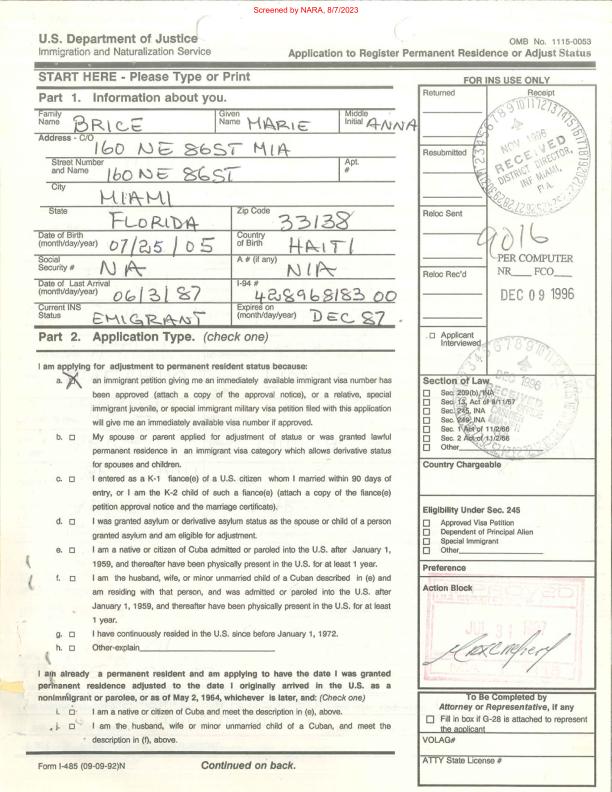 Screened by NARA, 8/7/2023
U.S. Department of Justice
Immigration and Naturalization Service
OMB No. 1115-0053
Application to Register Permanent Residence or Adjust Status
START HERE - Please Type or Print
Part 1. Information about you.
Family Name BRICE Given Name MARIE Middle Initial ANNA
Address - C/O 160 NE 86ST MIA
Street Number and Name 160 NE 86ST Apt. #
City MIAMI
State FLORIDA Zip Code 33138
Date of Birth (month/day/year) 07/25/05 Country of Birth HAITI
Social Security # NA A # (if any) N/A
Date of Last Arrival (month/day/year) 06/3/87 I-94 # 428968183 00
Current INS Status EMIGRANT Expires on (month/day/year) DEC 87
Part 2. Application Type. (check one)
I am applying for adjustment to permanent resident status because:
a. an immigrant petition giving me an immediately available immigrant visa number has
been approved (attach a copy of the approval notice), or a relative, special
immigrant juvenile, or special immigrant military visa petition filed with this application
will give me an immediately available visa number if approved.
b. ☐ My spouse or parent applied for adjustment of status or was granted lawful
permanent residence in an immigrant visa category which allows derivative status
for spouses and children.
c. ☐ I entered as a K-1 fiance(e) of a U.S. citizen whom I married within 90 days of
entry, or I am the K-2 child of such a fiance(e) (attach a copy of the fiance(e)
petition approval notice and the marriage certificate).
d. ☐ I was granted asylum or derivative asylum status as the spouse or child of a person
granted asylum and am eligible for adjustment.
e. ☐ I am a native or citizen of Cuba admitted or paroled into the U.S. after January 1,
1959, and thereafter have been physically present in the U.S. for at least 1 year.
f. ☐ I am the husband, wife, or minor unmarried child of a Cuban described in (e) and
am residing with that person, and was admitted or paroled into the U.S. after
January 1, 1959, and thereafter have been physically present in the U.S. for at least
1 year.
g. ☐ I have continuously resided in the U.S. since before January 1, 1972.
h. ☐ Other-explain
I am already a permanent resident and am applying to have the date I was granted
permanent residence adjusted to the date I originally arrived in the U.S. as a
nonimmigrant or parolee, or as of May 2, 1964, whichever is later, and: (Check one)
i. ☐ I am a native or citizen of Cuba and meet the description in (e), above.
j. ☐ I am the husband, wife or minor unmarried child of a Cuban, and meet the
description in (f), above.
Form I-485 (09-09-92)N Continued on back.
FOR INS USE ONLY
Returned Receipt
NOV 1996
RECEIVED
DISTRICT DIRECTOR,
INF MIAMI,
FLA.
Resubmitted
Reloc Sent
9016
PER COMPUTER
NR FCO
Reloc Rec'd
DEC 09 1996
☐ Applicant Interviewed
DEC 1996
Section of Law
☐ Sec. 209(b), INA
☐ Sec. 13, Act of 9/11/57
☐ Sec. 245, INA
☐ Sec. 249, INA
☐ Sec. 1 Act of 11/2/66
☐ Sec. 2 Act of 11/2/66
☐ Other
Country Chargeable
Eligibility Under Sec. 245
☐ Approved Visa Petition
☐ Dependent of Principal Alien
☐ Special Immigrant
☐ Other
Preference
Action Block
To Be Completed by
Attorney or Representative, if any
☐ Fill in box if G-28 is attached to represent
the applicant
VOLAG#
ATTY State License #